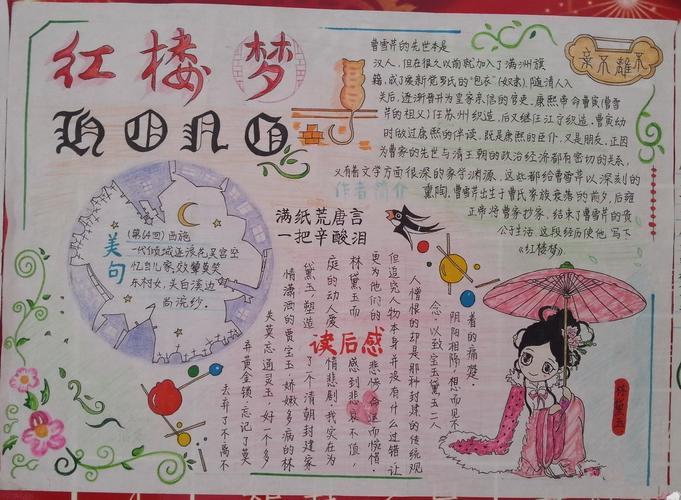 红楼梦
HONG
莫不離不
曹雪芹的先世本是
汉人,但在很久以前就加入了满洲旗
籍,成了爱新觉罗氏的“包衣”(奴隶),随清人入
关后,逐渐晋升为皇家亲信的官吏,康熙帝命曹寅(曹雪
芹的祖父)任苏州织造,后又继任江宁织造,曹寅幼
时做过康熙的伴读,既是康熙的臣仆,又是朋友,正因
为曹家的先世与清王朝的政治经济都有密切的关系,
又有着文学方面很深的家学渊源,这些都给曹雪芹以深刻的
作者简介
熏陶,曹雪芹出生于曹氏家族衰落的前夕,后雍
正帝将曹家抄家,结束了曹雪芹的贵
公子生活,这段经历使他写下
《红楼梦》。
美句
(第64回)西施
一代倾城逐浪花,吴宫空
忆自儿家,效颦莫笑
东村女,头白溪边
尚浣纱。
满纸荒唐言
一把辛酸泪
读后感
去弃了不离不
弃黄金锁,忘记了莫
失莫忘通灵玉,好一个多
情潇洒的贾宝玉,娇嫩多病的林
黛玉,塑造了一个清朝封建家
庭的动人爱情悲剧。我实在为
林黛玉而感到悲哀不值,
更为他们的悲惨命运而惋惜。
但追究人物本身并没有什么过错,让
人憎恨的却是那种封建的传统观
念,以致宝玉黛玉二人
阴阳相隔,想而见不
着的痛楚。
林黛玉